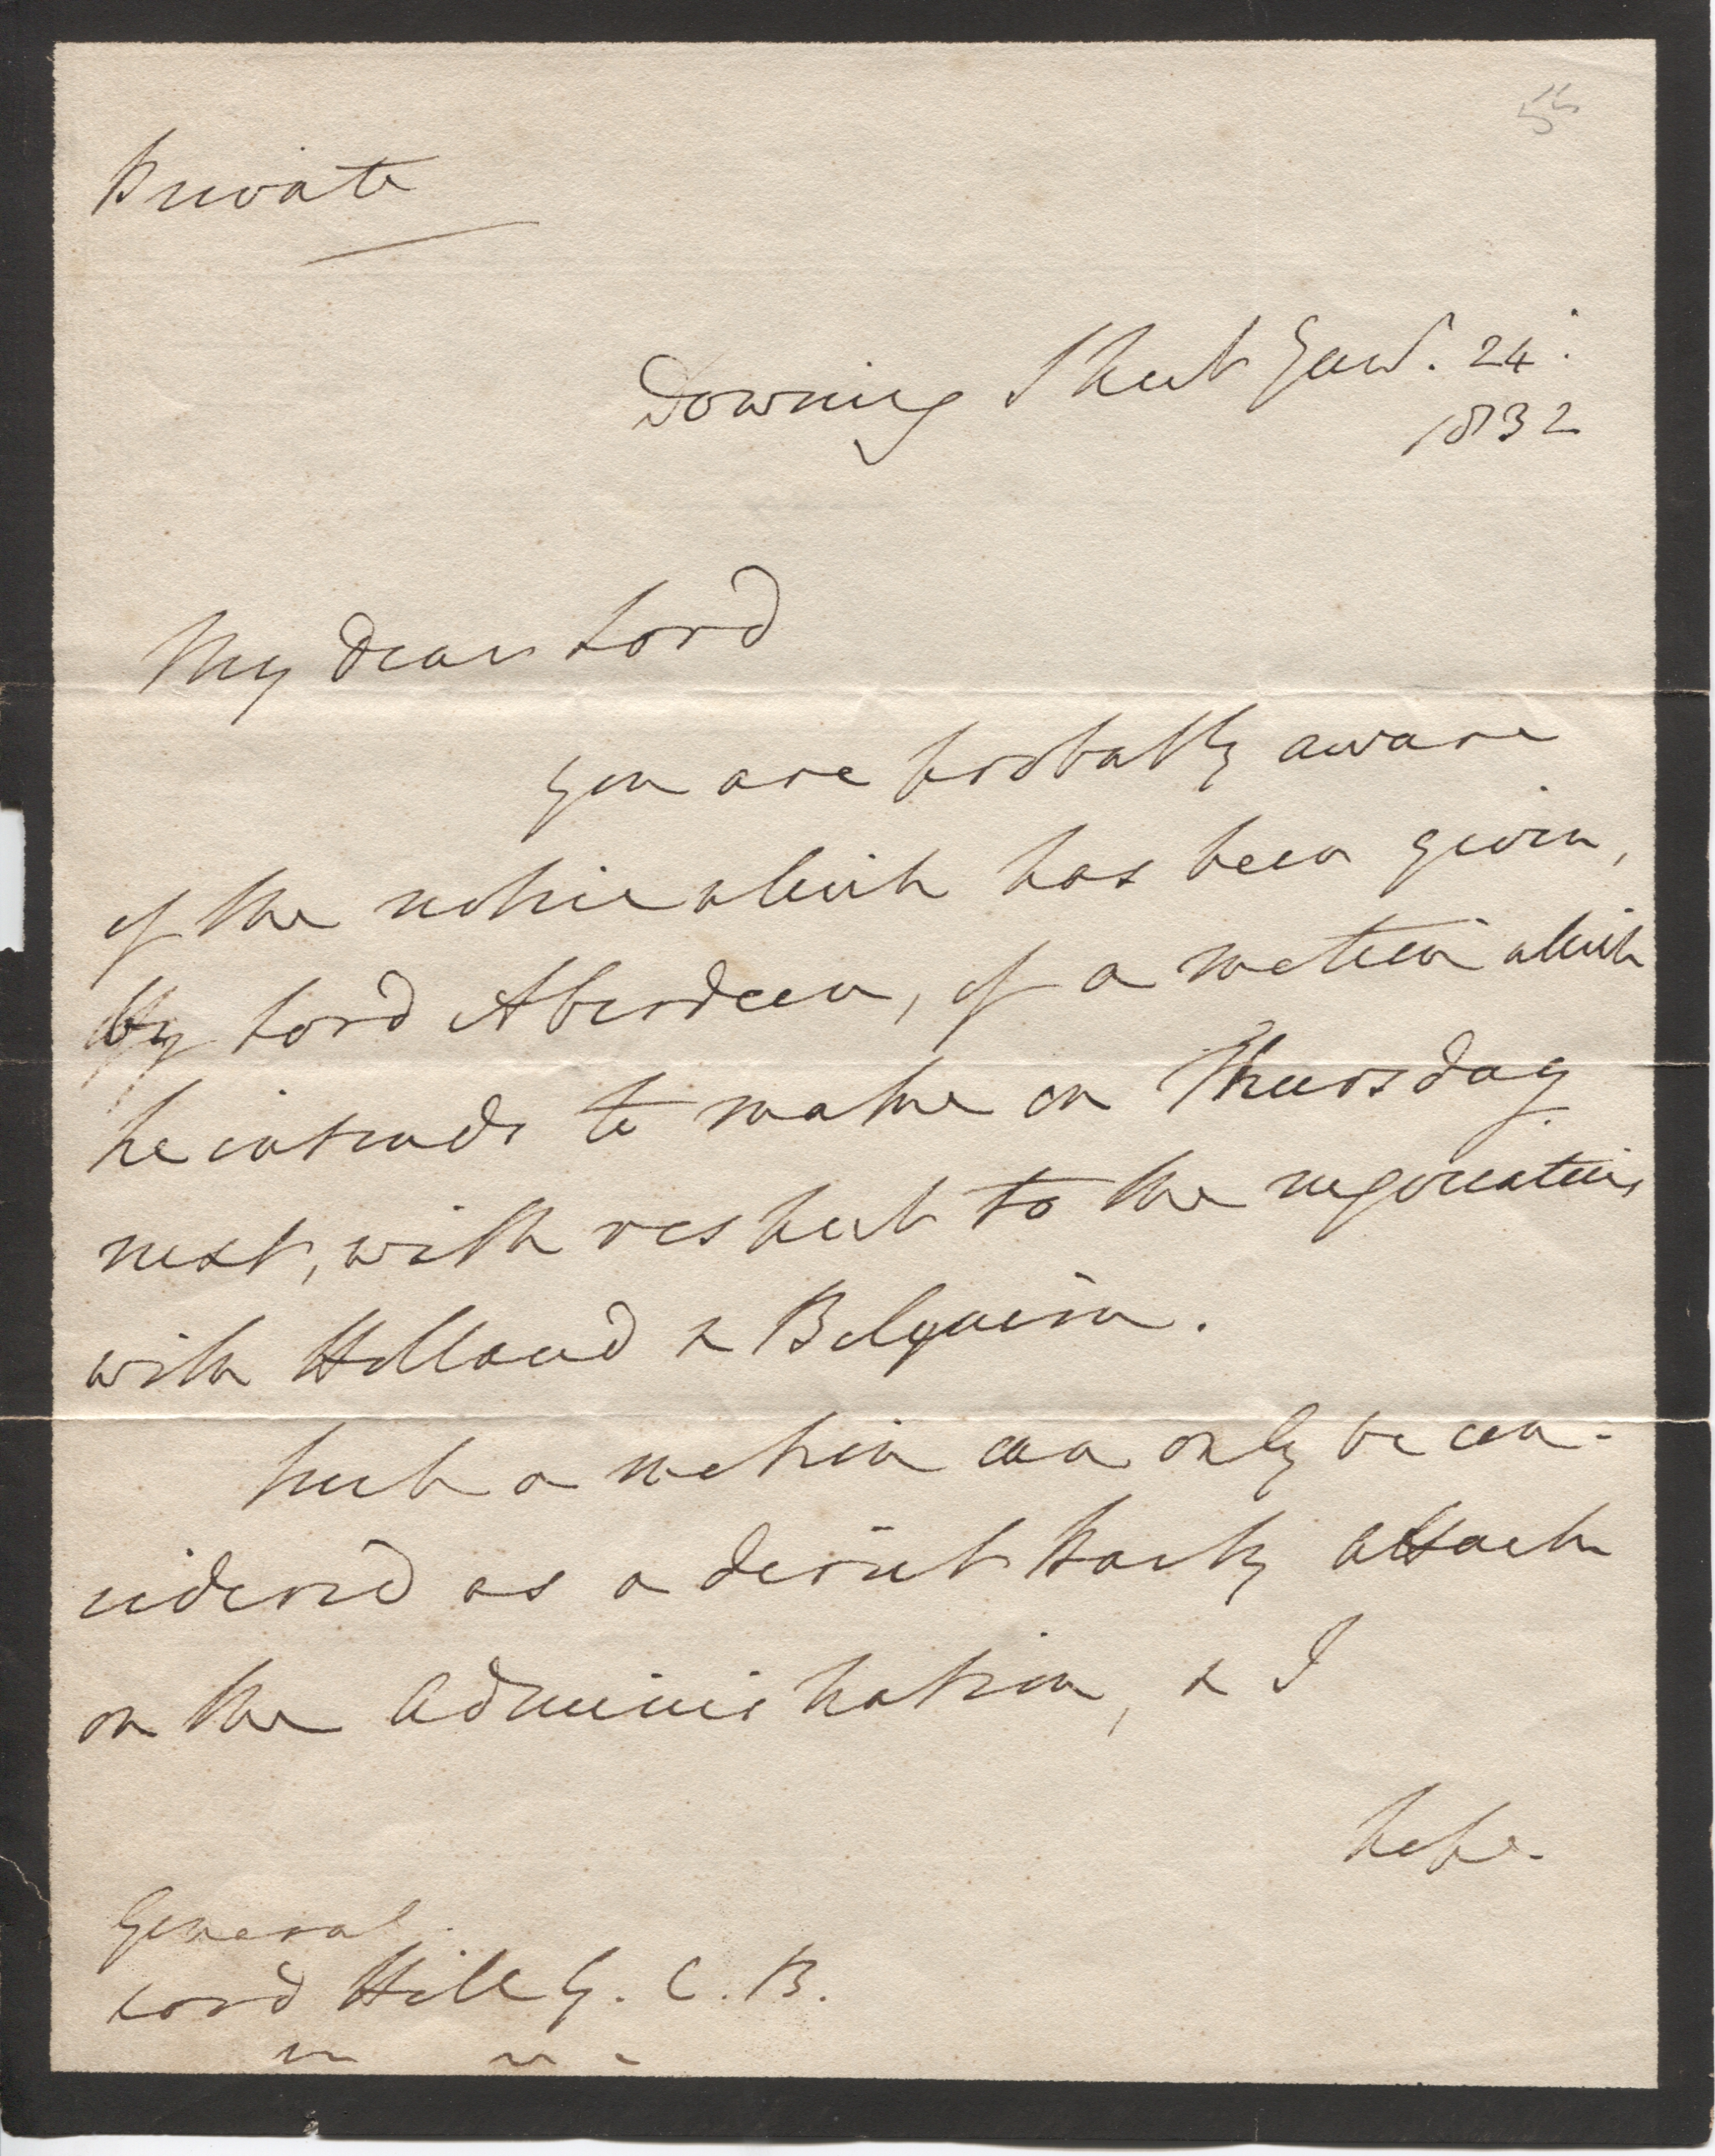 55
Private
Downing Street Jany. 24.
1832
My dear Lord
you are probably aware
of the notice which has been given,
by Lord Aberdeen, of a motion which
he intends to make on Thursday
next, with respect to the negociations
with Holland & Belgium.
Such a motion can only be con-
sidered as a direct Party attack
on the Administration, & I
hope.
General
Lord Hill G. C. B.